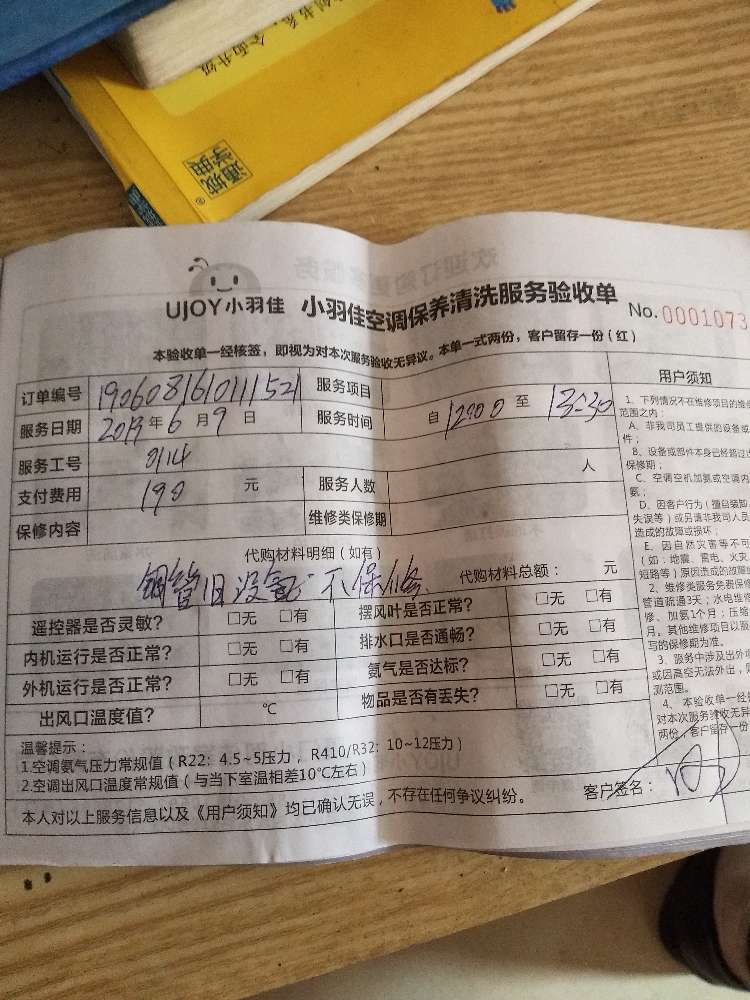 全面升级
通城学典
UJOY小羽佳 小羽佳空调保养清洗服务验收单 No.0001073
本验收单一经核签，即视为对本次服务验收无异议。本单一式两份，客户留存一份（红）
订单编号 190608161011521 服务项目
服务日期 2019年6月9日 服务时间 自 1200 至 13:30
服务工号 0114
支付费用 190 元 服务人数 人
保修内容 维修类保修期
代购材料明细（如有）
铜管旧没氟 不保修 代购材料总额： 元
遥控器是否灵敏？ □无 □有 摆风叶是否正常？ □无 □有
内机运行是否正常？ □无 □有 排水口是否通畅？ □无 □有
外机运行是否正常？ □无 □有 氨气是否达标？ □无 □有
出风口温度值？ ℃ 物品是否有丢失？ □无 □有
温馨提示：
1.空调氨气压力常规值（R22：4.5~5压力，R410/R32：10~12压力）
2.空调出风口温度常规值（与当下室温相差10℃左右）
客户签名：
本人对以上服务信息以及《用户须知》均已确认无误，不存在任何争议纠纷。
用户须知
1、下列情况不在维修项目的维
范围之内：
A、非我司员工提供的设备或
件；
B、设备或部件本身已经超过
保修期；
C、空调空机加氨或空调内
氨；
D、因客户行为（擅自装卸
失误等）或另请非我司人员
造成的故障或损坏；
E、因自然灾害等不可
（如：地震、雷电、火灾
短路等）原因造成的故障
2、维修类服务免费保修
管道疏通3天；水电维修
修、加氨1个月；压缩
月，其他维修项目以服
写的保修期为准。
3、服务中涉及出外
或因高空无法外出，
测范围。
4、本验收单一经
对本次服务验收无异
两份，客户留存一份